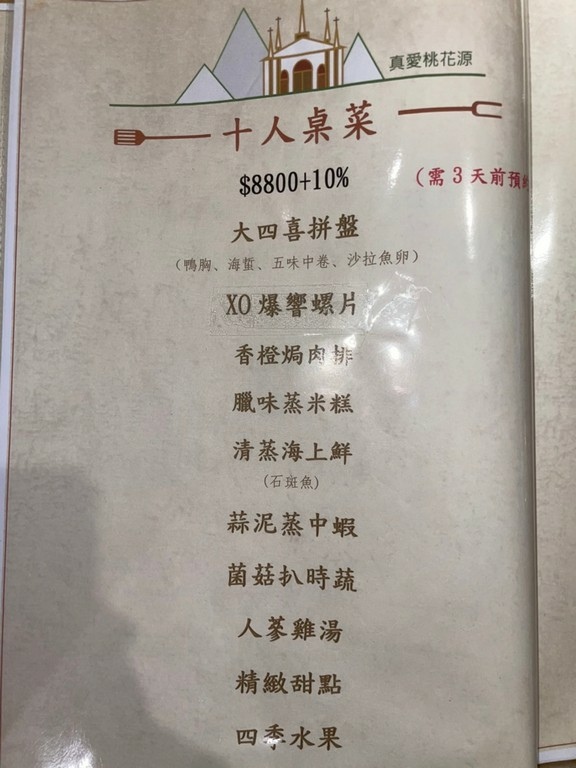 真愛桃花源
十人桌菜
$8800+10%
(需3天前預約
大四喜拼盤
(鴨胸、海蜇、五味中卷、沙拉魚卵)
XO爆響螺片
香橙焗肉排
臘味蒸米糕
清蒸海上鮮
(石斑魚)
蒜泥蒸中蝦
菌菇扒時蔬
人蔘雞湯
精緻甜點
四季水果